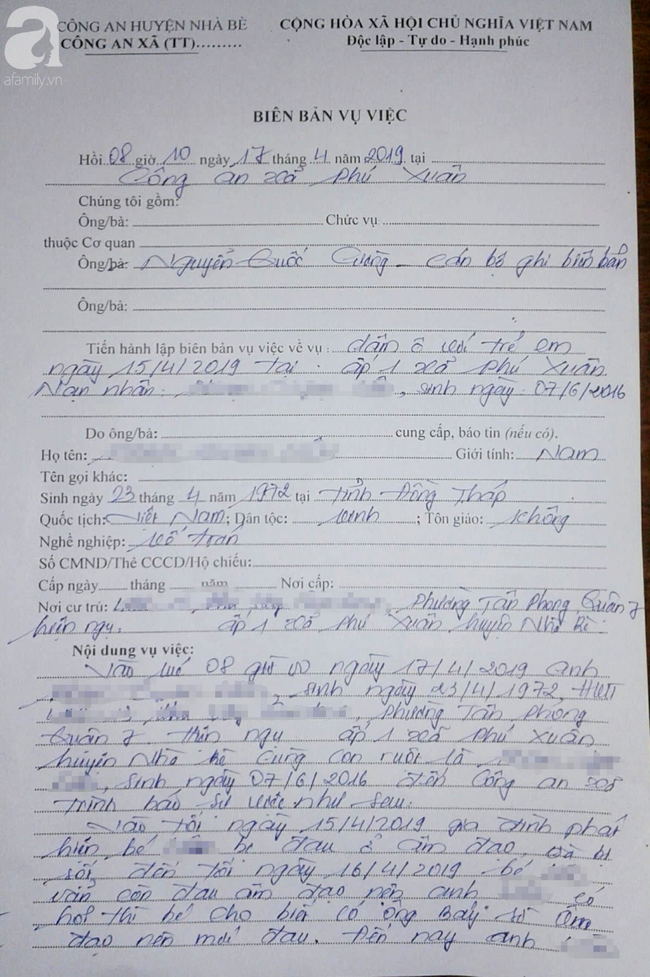 a
afamily.vn
CÔNG AN HUYỆN NHÀ BÈ CỘNG HÒA XÃ HỘI CHỦ NGHĨA VIỆT NAM
CÔNG AN XÃ (TT)......... Độc lập - Tự do - Hạnh phúc
BIÊN BẢN VỤ VIỆC
Hồi 08 giờ 10 ngày 17 tháng 4 năm 2019 tại
Công an xã Phú Xuân
Chúng tôi gồm:
Ông/bà: Chức vụ
thuộc Cơ quan
Ông/bà: Nguyễn Quốc Cường - cán bộ ghi biên bản
Ông/bà:
Tiến hành lập biên bản vụ việc về vụ: dâm ô với trẻ em
ngày 15/4/2019 tại ấp 1 xã Phú Xuân
Nạn nhân: , sinh ngày: 07/6/2016
Do ông/bà: cung cấp, báo tin (nếu có).
Họ tên: Giới tính: Nam
Tên gọi khác:
Sinh ngày 23 tháng 4 năm 1972 tại Tỉnh Đồng Tháp
Quốc tịch: Việt Nam; Dân tộc: kinh; Tôn giáo: không
Nghề nghiệp:
Số CMND/Thẻ CCCD/Hộ chiếu:
Cấp ngày tháng năm Nơi cấp:
Nơi cư trú: , Phường Tân Phong, Quận 7
hiện ngụ: ấp 1 xã Phú Xuân huyện Nhà Bè.
Nội dung vụ việc:
Vào lúc 08 giờ 00 ngày 17/4/2019 anh
, sinh ngày 23/4/1972, HKTT
, phường Tân Phong
Quận 7 hiện ngụ ấp 1 xã Phú Xuân
huyện Nhà Bè cùng con ruột là
, sinh ngày 07/6/2016 đến Công an xã
trình báo sự việc như sau:
Vào tối ngày 15/4/2019 gia đình phát
hiện bé bị đau ở âm đạo, và bị
sốt, đến tối ngày 16/4/2019 bé
vẫn còn đau âm đạo nên anh có
hỏi thì bé cho biết có ông Bảy sờ âm
đạo nên mới đau. Đến nay anh